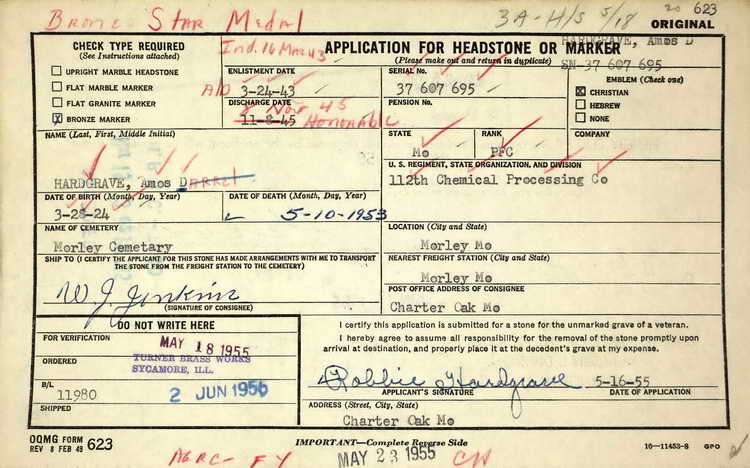 Bronze Star Medal
3A-H/S 5/18
20 623
ORIGINAL
CHECK TYPE REQUIRED
(See Instructions attached)
UPRIGHT MARBLE HEADSTONE
FLAT MARBLE MARKER
FLAT GRANITE MARKER
X BRONZE MARKER
Ind. 16 Mar 43
ENLISTMENT DATE
A/D 3-24-43
DISCHARGE DATE
8 Nov 45
11-8-45 Honorable
APPLICATION FOR HEADSTONE OR MARKER
(Please make out and return in duplicate)
HARDGRAVE, Amos D
SN-37 607 695
SERIAL No.
37 607 695
PENSION No.
EMBLEM (Check one)
X CHRISTIAN
HEBREW
NONE
STATE
Mo
RANK
PFC
COMPANY
NAME (Last, First, Middle Initial)
HARDGRAVE, Amos Darrel
U. S. REGIMENT, STATE ORGANIZATION, AND DIVISION
112th Chemical Processing Co
DATE OF BIRTH (Month, Day, Year)
3-28-24
DATE OF DEATH (Month, Day, Year)
5-10-1953
NAME OF CEMETERY
Morley Cemetary
LOCATION (City and State)
Morley Mo
SHIP TO (I CERTIFY THE APPLICANT FOR THIS STONE HAS MADE ARRANGEMENTS WITH ME TO TRANSPORT THE STONE FROM THE FREIGHT STATION TO THE CEMETERY)
W. J. Jenkins
(SIGNATURE OF CONSIGNEE)
NEAREST FREIGHT STATION (City and State)
Morley Mo
POST OFFICE ADDRESS OF CONSIGNEE
Charter Oak Mo
DO NOT WRITE HERE
FOR VERIFICATION
MAY 18 1955
ORDERED
TURNER BRASS WORKS
SYCAMORE, ILL.
B/L
11980
2 JUN 1955
SHIPPED
I certify this application is submitted for a stone for the unmarked grave of a veteran.
I hereby agree to assume all responsibility for the removal of the stone promptly upon
arrival at destination, and properly place it at the decedent's grave at my expense.
Robbie Hardgrave
5-16-55
APPLICANT'S SIGNATURE
DATE OF APPLICATION
ADDRESS (Street, City, State)
Charter Oak Mo
OQMG FORM
REV 8 FEB 49 623
IMPORTANT—Complete Reverse Side
16—11453-8 GPO
AGRC-FY
MAY 23 1955